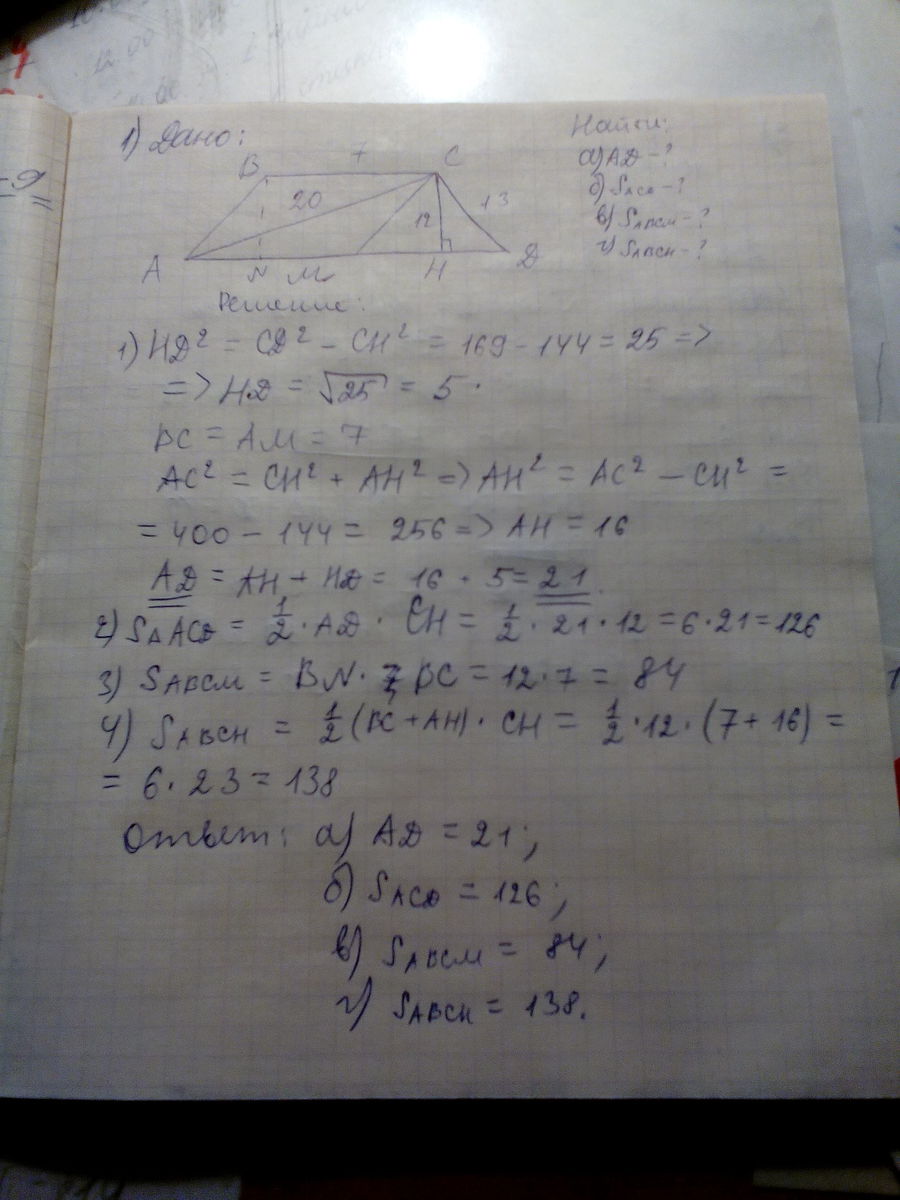 1) Дано:
Найти:
а) AD - ?
б) SACD - ?
в) SABCM - ?
г) SABCH - ?
B 7 C
20 12 13
A N M H D
Решение:
1) HD² = CD² - CH² = 169 - 144 = 25 =>
=> HD = √25 = 5.
BC = AM = 7
AC² = CH² + AH² => AH² = AC² - CH² =
= 400 - 144 = 256 => AH = 16
AD = AH + HD = 16 + 5 = 21.
2) S△ACD = 1/2 · AD · CH = 1/2 · 21 · 12 = 6 · 21 = 126
3) SABCM = BN · BC = 12 · 7 = 84
4) SABCH = 1/2 (BC + AH) · CH = 1/2 · 12 · (7 + 16) =
= 6 · 23 = 138
Ответ: а) AD = 21;
б) SACD = 126;
в) SABCM = 84;
г) SABCH = 138.